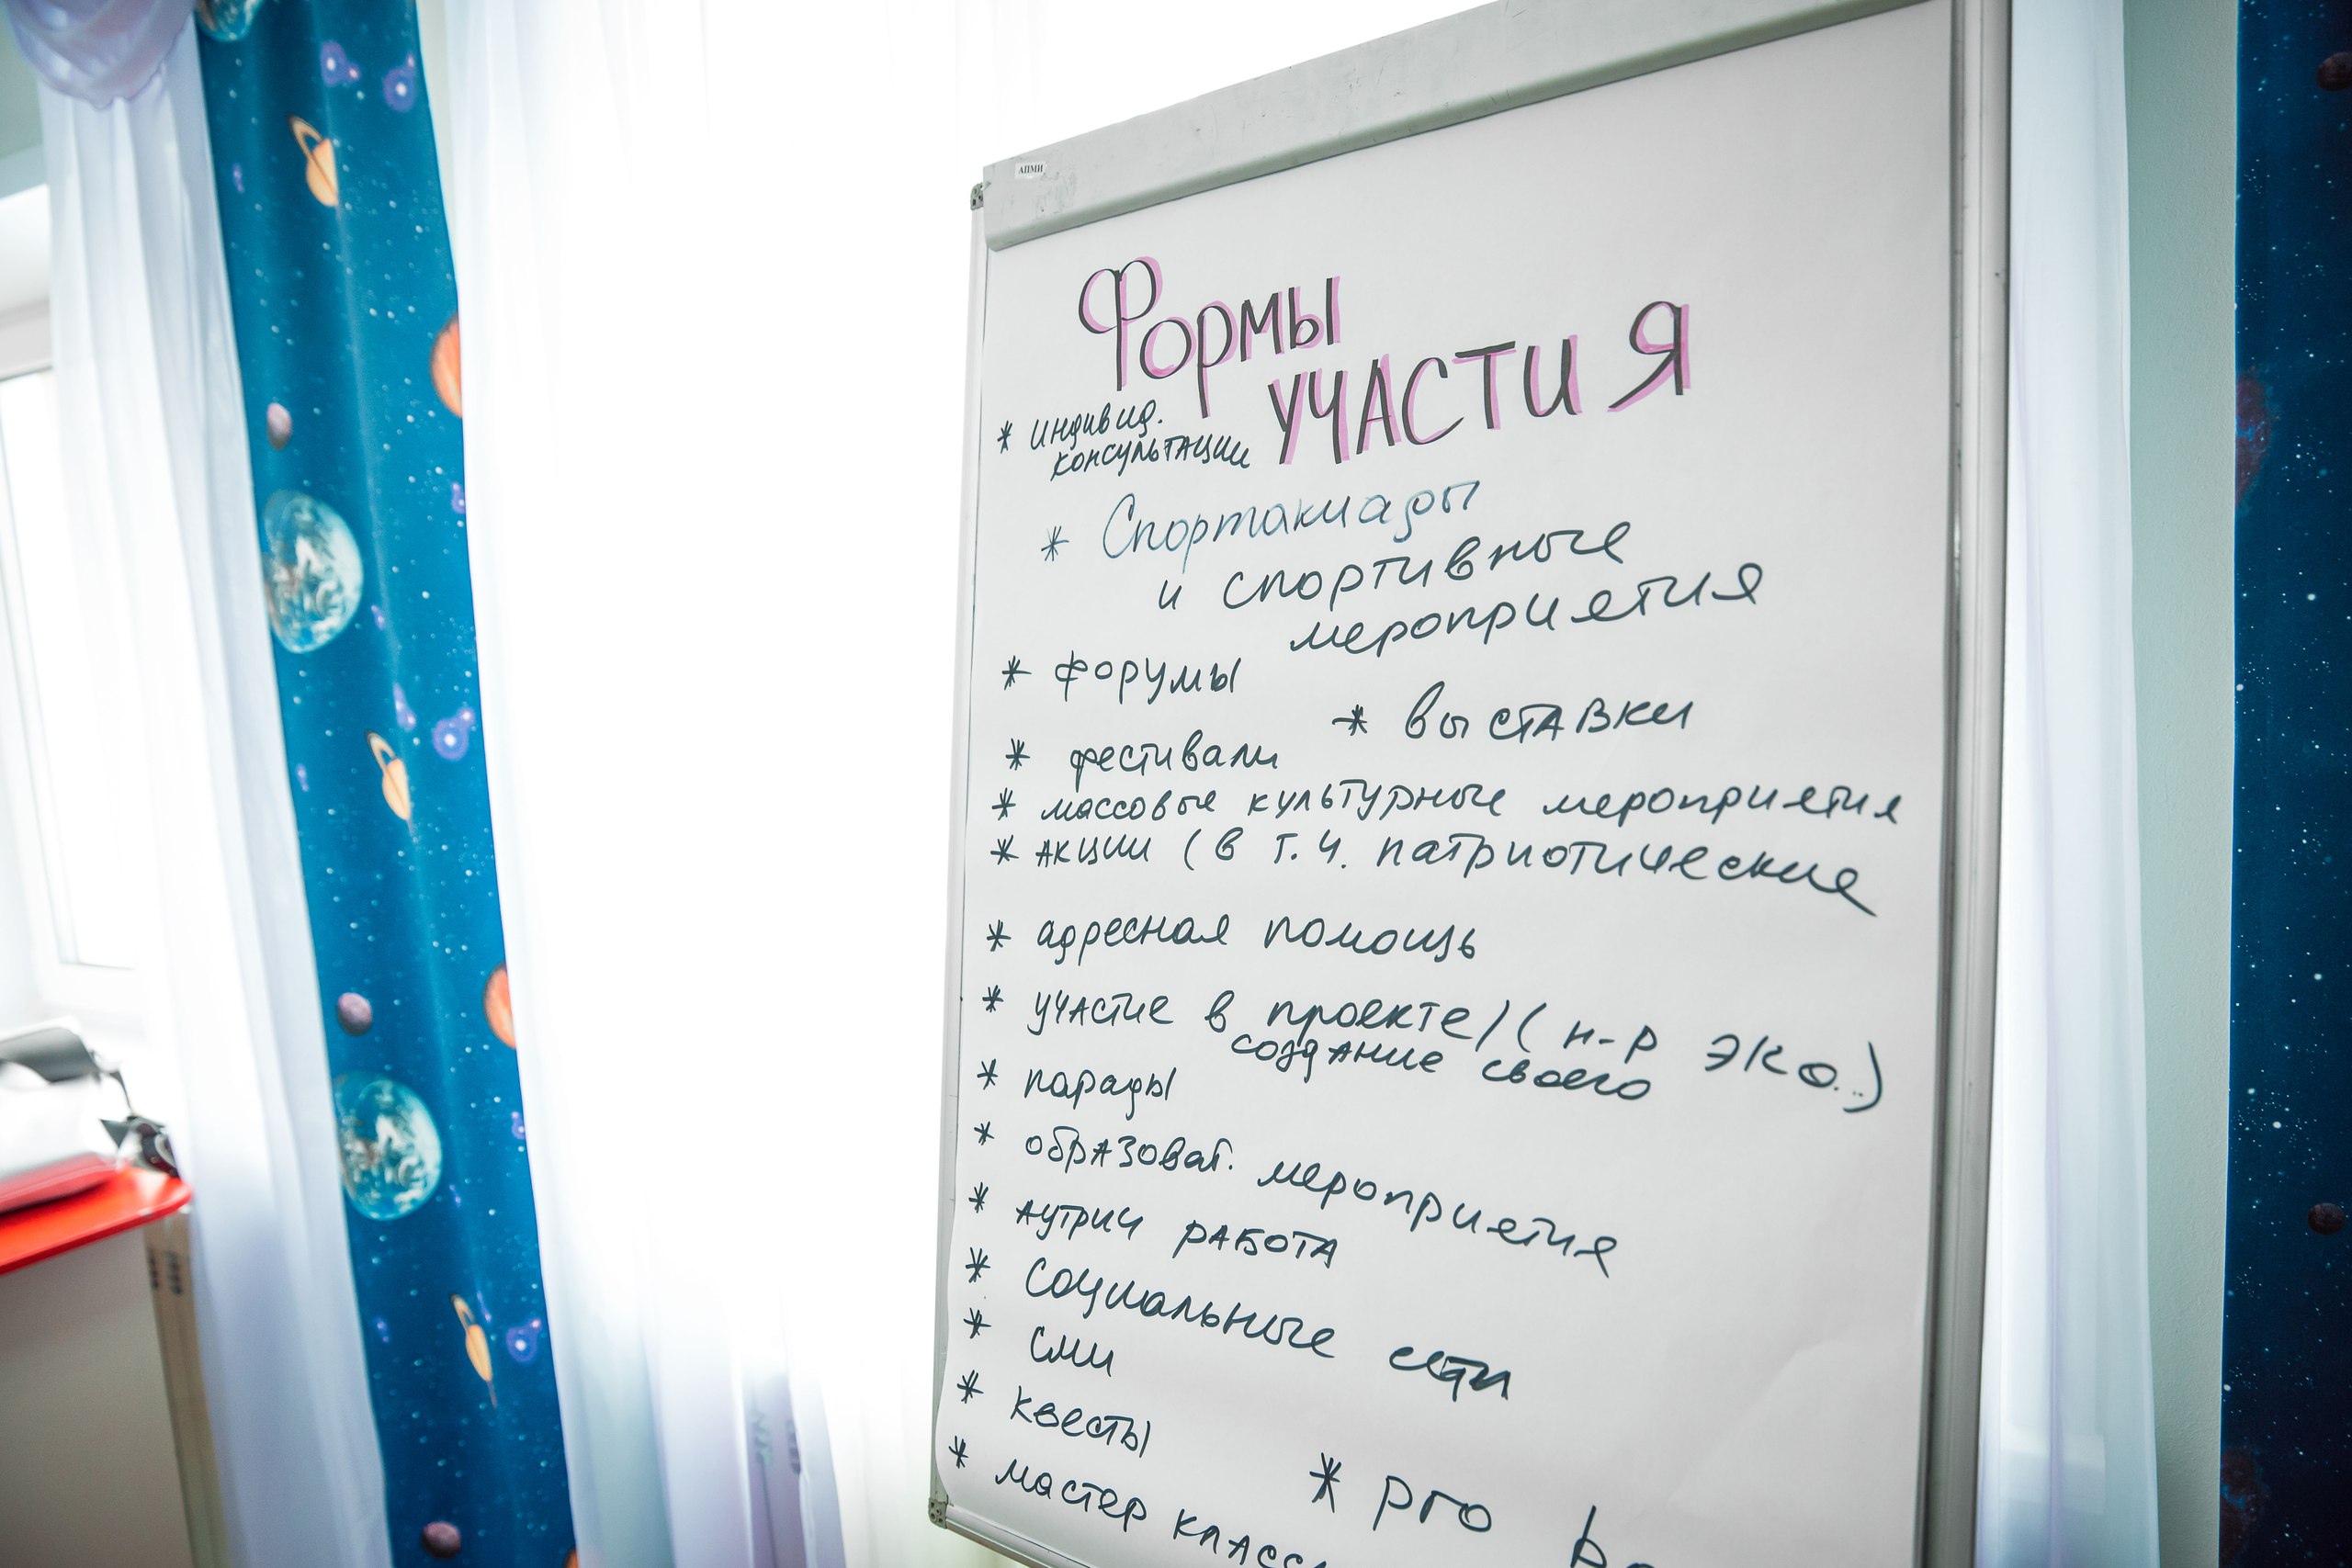 АПМИ
Формы
УЧАСТИЯ
* индивид.
консультации
* Спортакиады
и спортивные
мероприятия
* форумы
* выставки
* фестивали
* массовые культурные мероприятия
* акции (в т.ч. патриотические
* адресная помощь
* участие в проекте/( н-р эко..)
создание своего
* парады
* образоват. мероприятия
* аутрич работа
* социальные сети
* сми
* квесты
* pro
* мастер